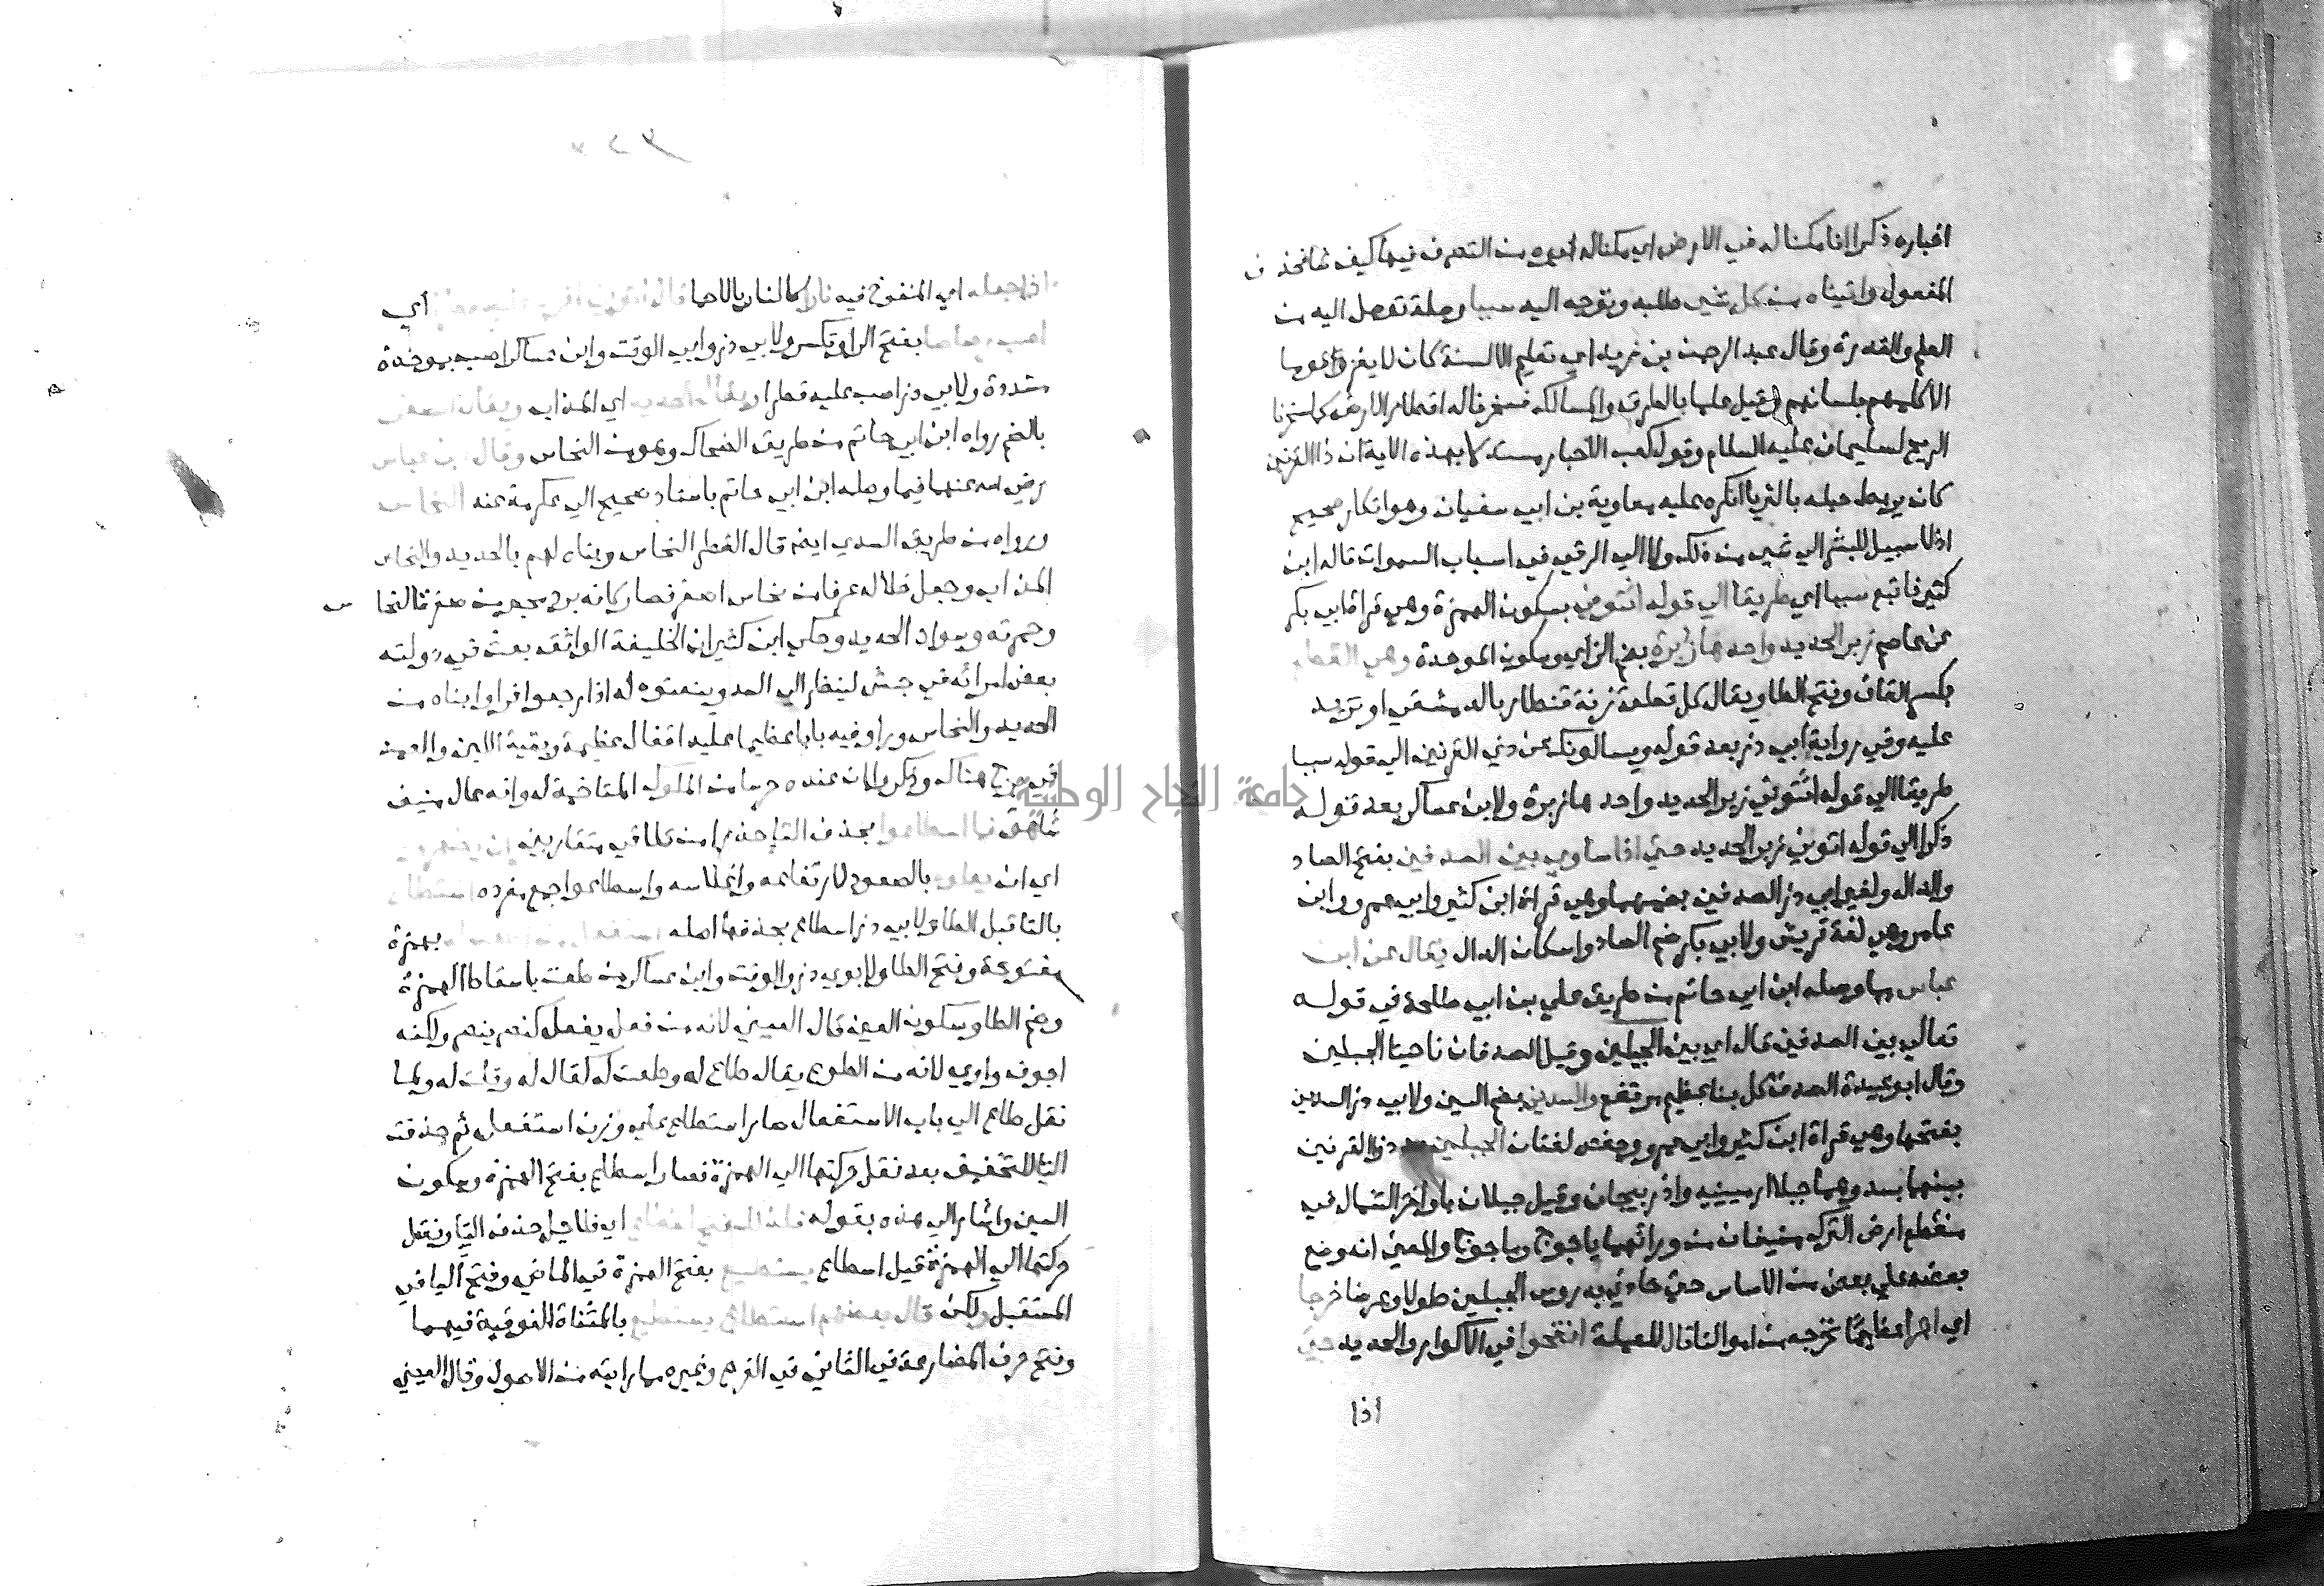 اخباره ذكرا انا مكنا له في الارض اي مكنا له امره من التصرف فيها كيف شا فحذف
المفعول واتيناه من كل شي طلبه وتوجه اليه سببا وصلة توصل اليه من
العلم والقدرة وقال عبد الرحمن بن زيد اي تعليم الالسنة كان لا يغزو قوما
الا كلمهم بلسانهم وقيل علما بالطرق والمسالك فسخرنا له اقطار الارض كما سخرنا
الريح لسليمان عليه السلام وقول كعب الاحبار مستدلا بهذه الاية ان ذا القرنين
كان يربط خيله بالثريا انكره عليه معاوية بن ابي سفيان وهو انكار صحيح
اذ لا سبيل للبشر الي شي من ذلك ولا الي الرقي في اسباب السموات قاله ابن
كثير فاتبع سببا اي طريقا الي قوله ائتوني بسكون الهمزة وهي قراة ابي بكر
عن عاصم زبر الحديد واحدها زبرة بضم الزاي وسكون الموحدة وهي القطع
بكسر القاف وفتح الطا ويقال كل قطعة زنة قنطار بالدمشقي او تزيد
عليه وفي رواية ابي ذر بعد قوله ويسالونك عن ذي القرنين الي قوله سببا
طريقا الي قوله ائتوني زبر الحديد واحدها زبرة ولابن عساكر بعد قوله
ذكرا الي قوله اتوني زبر الحديد حتي اذا ساوي بين الصدفين بفتح الصاد
والدال ولغير ابي ذر الصدفين بضمهما وهي قراة ابن كثير وابي عمرو وابن
عامر وهي لغة قريش ولابي بكر ضم الصاد واسكان الدال يقال عن ابن
عباس مما وصله ابن ابي حاتم من طريق علي بن ابي طلحة في قوله
تعالي بين الصدفين قال اي بين الجبلين وقيل الصدفان ناحيتا الجبلين
وقال ابو عبيدة الصدف كل بنا عظيم مرتفع والسدين بضم السين ولابي ذر السدين
بفتحها وهي قراة ابن كثير وابي عمرو وحفص لغتان الجبلين سد ذو القرنين
بينهما بسد وهما جبلا ارمينيه واذربيجان وقيل جبلان باواخر الشمال في
منقطع ارض الترك منيفان من ورائهما ياجوج وماجوج والمعني انه وضع
بعضه علي بعض من الاساس حتي حاذي به روس الجبلين طولا وعرضا خرجا
اي اجرا عظيما نخرجه من اموالنا قال للعملة انفخوا في الاكوار والحديد حتي
اذا
اذا جعله اي المنفوخ فيه نارا كالنار بالاحما قال اتوني افرغ اي
اصب بفتح الرا وتكسر ولابي ذر وابي الوقت وابن عساكر اصب بموحدة
مشددة ولابي ذر اصب عليه قطرا ويقال الحديد اي المذاب ويقال الصفر
بالضم رواه ابن ابي حاتم من طريق الضحاك وهو من النحاس وقال ابن عباس
رضي الله عنهما فيما وصله ابن ابي حاتم باسناد صحيح الي عكرمة عنه النحاس
ورواه من طريق السدي ايضا قال القطر النحاس وبناه لهم بالحديد والنحاس
المذاب وجعل خلاله عرقا من نحاس اصفر فصار كانه برد محبر من صفرة النحاس
وحمرته وسواد الحديد وحكي ابن كثير ان الخليفة الواثق بعث في دولته
بعض امرائه في جيش لينظر الي السد وينعتوه له اذا رجعوا فراوا بناه من
الحديد والنحاس وراوا فيه بابا عظيما عليه اقفال عظيمة وبقية اللبن والعمل
في برج هناك وذكروا ان عنده حرسا من الملوك المتاخمة له وانه عال منيف
شاهق فما اسطاعوا بحذف التا حذرا من تلاقي متقاربين ان يظهروه
اي ان يعلوه بالصعود لارتفاعه وانملاسه واسطاعوا جمع مفرده استطاع
بالتا قبل الطا ولابي ذر اسطاع بحذفها اصله استفعل بهمزة
مفتوحة وفتح الطا ولابوي ذر والوقت وابن عساكر من طعت باسقاط الهمزة
وضم الطا وسكون العين قال العيني لانه من فعل يفعل كنصر ينصر ولكنه
اجوف واوي لانه من الطوع يقال طاع له وطعت له كقال له وقلت له ولما
نقل طاع الي باب الاستفعال صار استطاع علي وزن استفعل ثم حذفت
التا للتخفيف بعد نقل حركتها الي الهمزة فصار اسطاع بفتح الهمزة وسكون
السين واشار الي هذه بقوله فلذلك فتح اسطاع اي فلاجل حذف التا ونقل
حركتها الي الهمزة قيل اسطاع يسطيع بفتح الهمزة في الماضي وفتح اليا في
المستقبل ولكن قال بعضهم استطاع يستطيع بالمثناة الفوقية فيهما
وفتح حرف المضارعة في الثاني في الفرع وغيره مما رايته من الاصول وقال العيني
جامعة النجاح الوطنية